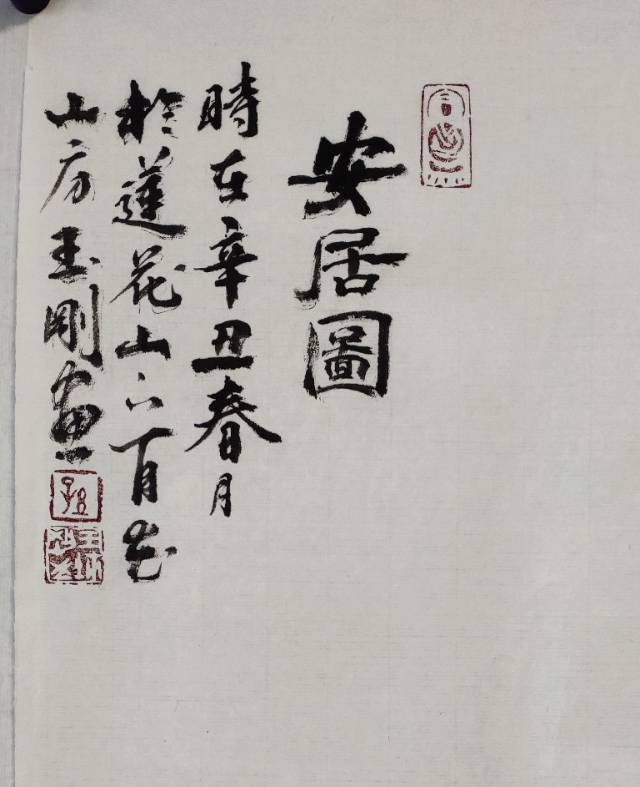 安居圖
時在辛丑春月
於蓮花山下百花
山房玉剛畫